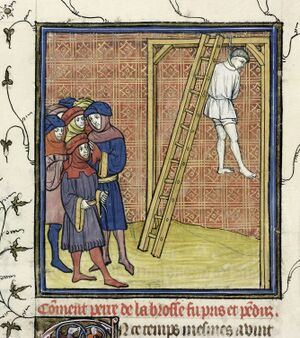 Coment pierre de la brosse fu pris et pendu.
En ce temps mesmes avint